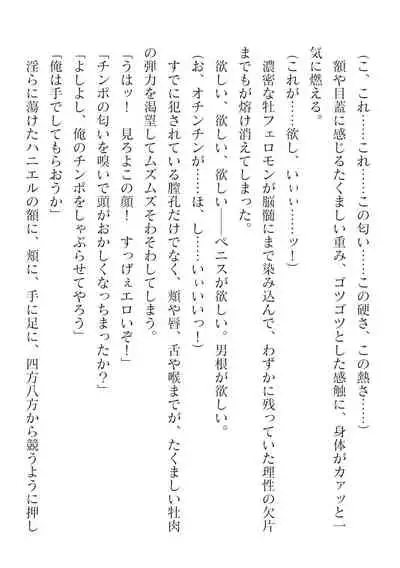 （こ、これ……これ……この匂い……この硬さ、この熱さ……）
額や目蓋に感じるたくましい重み、ゴツゴツとした感触に、身体がカァッと一
気に燃える。
（これが……欲し、いぃぃ……ッ！）
濃密な牡フェロモンが脳髄にまで染み込んで、わずかに残っていた理性の欠片
までもが熔け消えてしまった。
欲しい、欲しい、欲しい――ペニスが欲しい。男根が欲しい。
（お、オチンチンが……ほ、し……いぃいいっ！）
すでに犯されている膣孔だけでなく、頬や唇、舌や喉までが、たくましい牡肉
の弾力を渇望してムズムズそわそわしてしまう。
「うはッ！　見ろよこの顔！　すっげぇエロいぞ！」
「チンポの匂いを嗅いで頭がおかしくなっちまったか？」
「よしよし、俺のチンポをしゃぶらせてやろう」
「俺は手でしてもらおうか」
淫らに蕩けたハニエルの額に、頬に、手に足に、四方八方から競うように押し